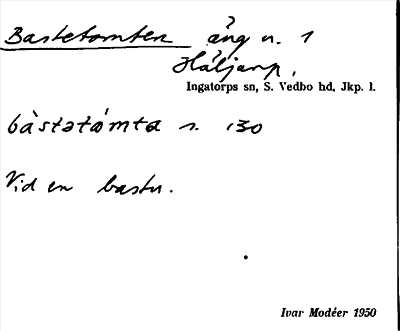 Bastetomten äng n. 1
Häljarp,
Ingatorps sn, S. Vedbo hd, Jkp. l.
bàstetómta n. 130
Vid en bastu.
Ivar Modéer 1950